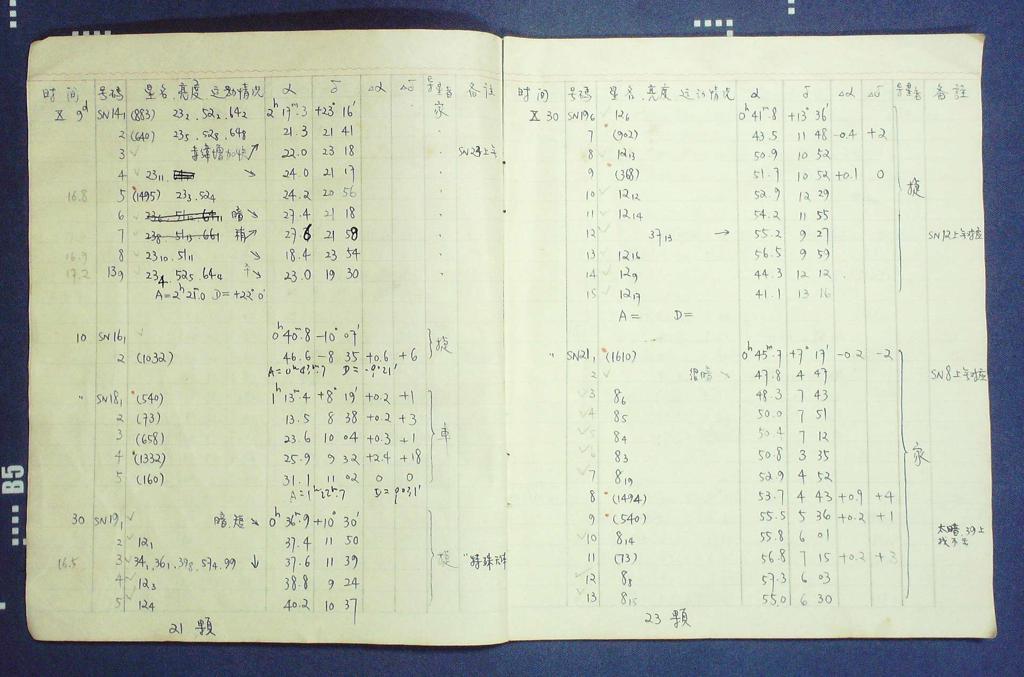 时间 号码 星名、亮度、运动情况 α δ Δα Δδ 备注
X 9d SN14₁ (883) 23₂, 52₂, 64₂ 2h 17m.3 +23° 16′ 家
2 (640) 23₅, 52₈, 64₈ 21.3 21 41
3 22.0 23 18
4 23₁₁ ↘ 24.0 21 17
16.8 5 (1495) 23₃, 52₄ 24.2 20 56
6 暗 ↘ 27.4 21 18
7 27.6 21 58
16.9 8 23₁₀, 51₁ ↘ 18.4 23 54
17.2 9 23₄, 52₅, 64₁₂ ↘ 23.0 19 30
A=2h 21m.0 D=+22° 0′
10 SN16₁ 0h 40m.8 -10° 07′
2 (1032) 46.6 -8 35 +0.6 +6
A=0h 43m.7 D=-9°21′
" SN18₁ (540) 1h 13m.4 +8° 19′ +0.2 +1
2 (73) 13.5 8 38 +0.2 +3
3 (658) 23.6 10 04 +0.3 +1 車
4 (1332) 25.9 9 32 +2.4 +18
5 (160) 31.1 11 02 0 0
A=1h 22m.7 D=9°31′
30 SN19₁ 暗、短 ↘ 0h 36m.9 +10° 30′
2 12₁ 37.4 11 50
16.5 3 34₁, 36₁, 39₈, 59₄, 99 ↓ 37.6 11 39
4 12₃ 38.8 9 24
5 12₄ 40.2 10 37
21 顆
时间 号码 星名、亮度、运动情况 α δ Δα Δδ 备注
X 30 SN19₆ 12₆ 0h 41m.8 +13° 36′
7 (902) 43.5 11 48 -0.4 +2
8 12₁₃ 50.9 10 52
9 (368) 51.7 10 52 +0.1 0
10 12₁₂ 52.9 12 29
11 12₁₄ 54.2 11 55
12 37₁₃ → 55.2 9 27 SN12上
13 12₁₆ 56.5 9 59
14 12₉ 44.3 12 12
15 12₁₇ 41.1 13 16
A= D=
" SN21₁ (1610) 0h 45m.7 +7° 17′ -0.2 -2
2 很暗 ↘ 47.8 4 47 SN8上
3 8₆ 48.3 7 43
4 8₅ 50.0 7 51
5 8₄ 50.4 7 12
6 8₃ 50.8 3 35 家
7 8₁₉ 52.9 4 52
8 (1494) 53.7 4 43 +0.9 +4
9 (540) 55.5 5 36 +0.2 +1
10 8₁₄ 55.8 6 01 太暗, 39上
找不出
11 (73) 56.8 7 15 +0.2 +3
12 8₈ 57.3 6 03
13 8₁₅ 55.0 6 30
23 顆
B5